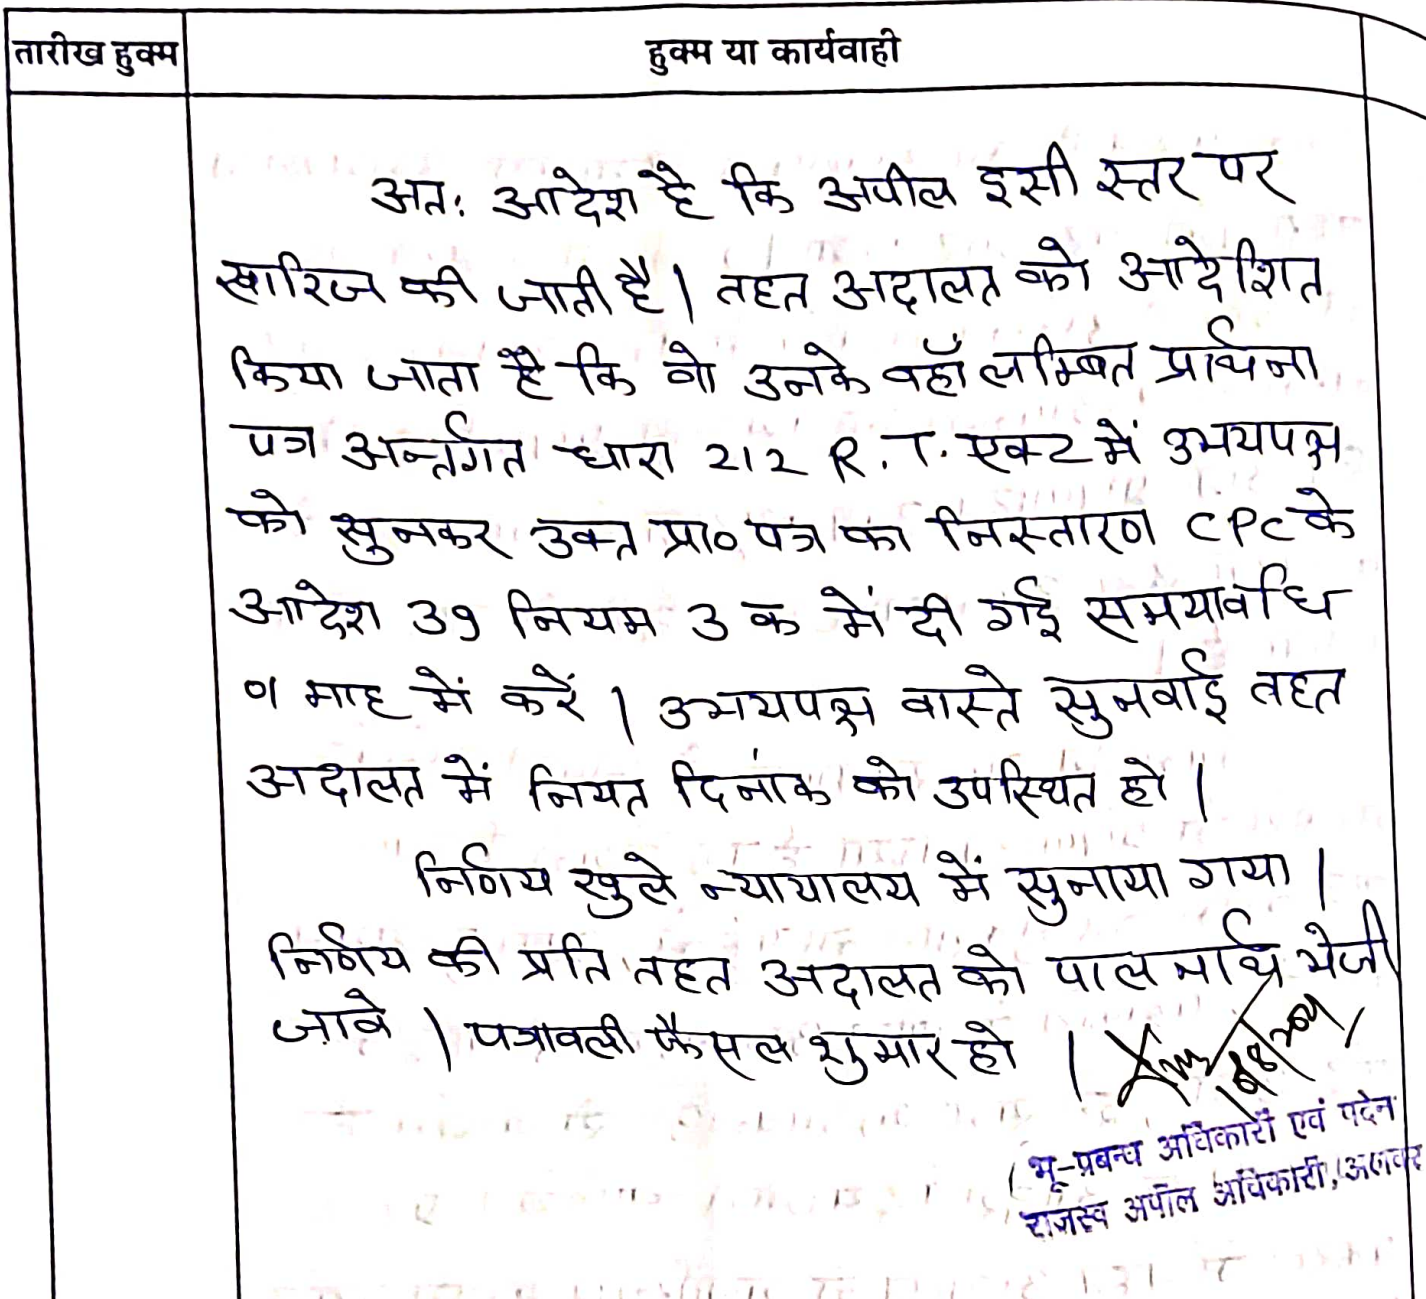 तारीख हुक्म
हुक्म या कार्यवाही
अत: आदेश है कि अपील इसी स्तर पर
खारिज की जाती है। तहत अदालत को आदेशित
किया जाता है कि वो उनके वहाँ लम्बित प्रार्थना
पत्र अर्न्तगत धारा 212 R.T. एक्ट में उभयपक्ष
को सुनकर उक्त प्रा० पत्र का निस्तारण CPC के
आदेश 39 नियम 3 क में दी गई समयावधि
01 माह में करें। उभयपक्ष वास्ते सुनवाई तहत
अदालत में नियत दिनांक को उपस्थित हो।
निर्णय खुले न्यायालय में सुनाया गया।
निर्णय की प्रति तहत अदालत को पालनार्थ भेजी
जावे। पत्रावली फैसल शुमार हो।
भू-प्रबन्ध अधिकारी एवं पदेन
राजस्व अपील अधिकारी, अलवर